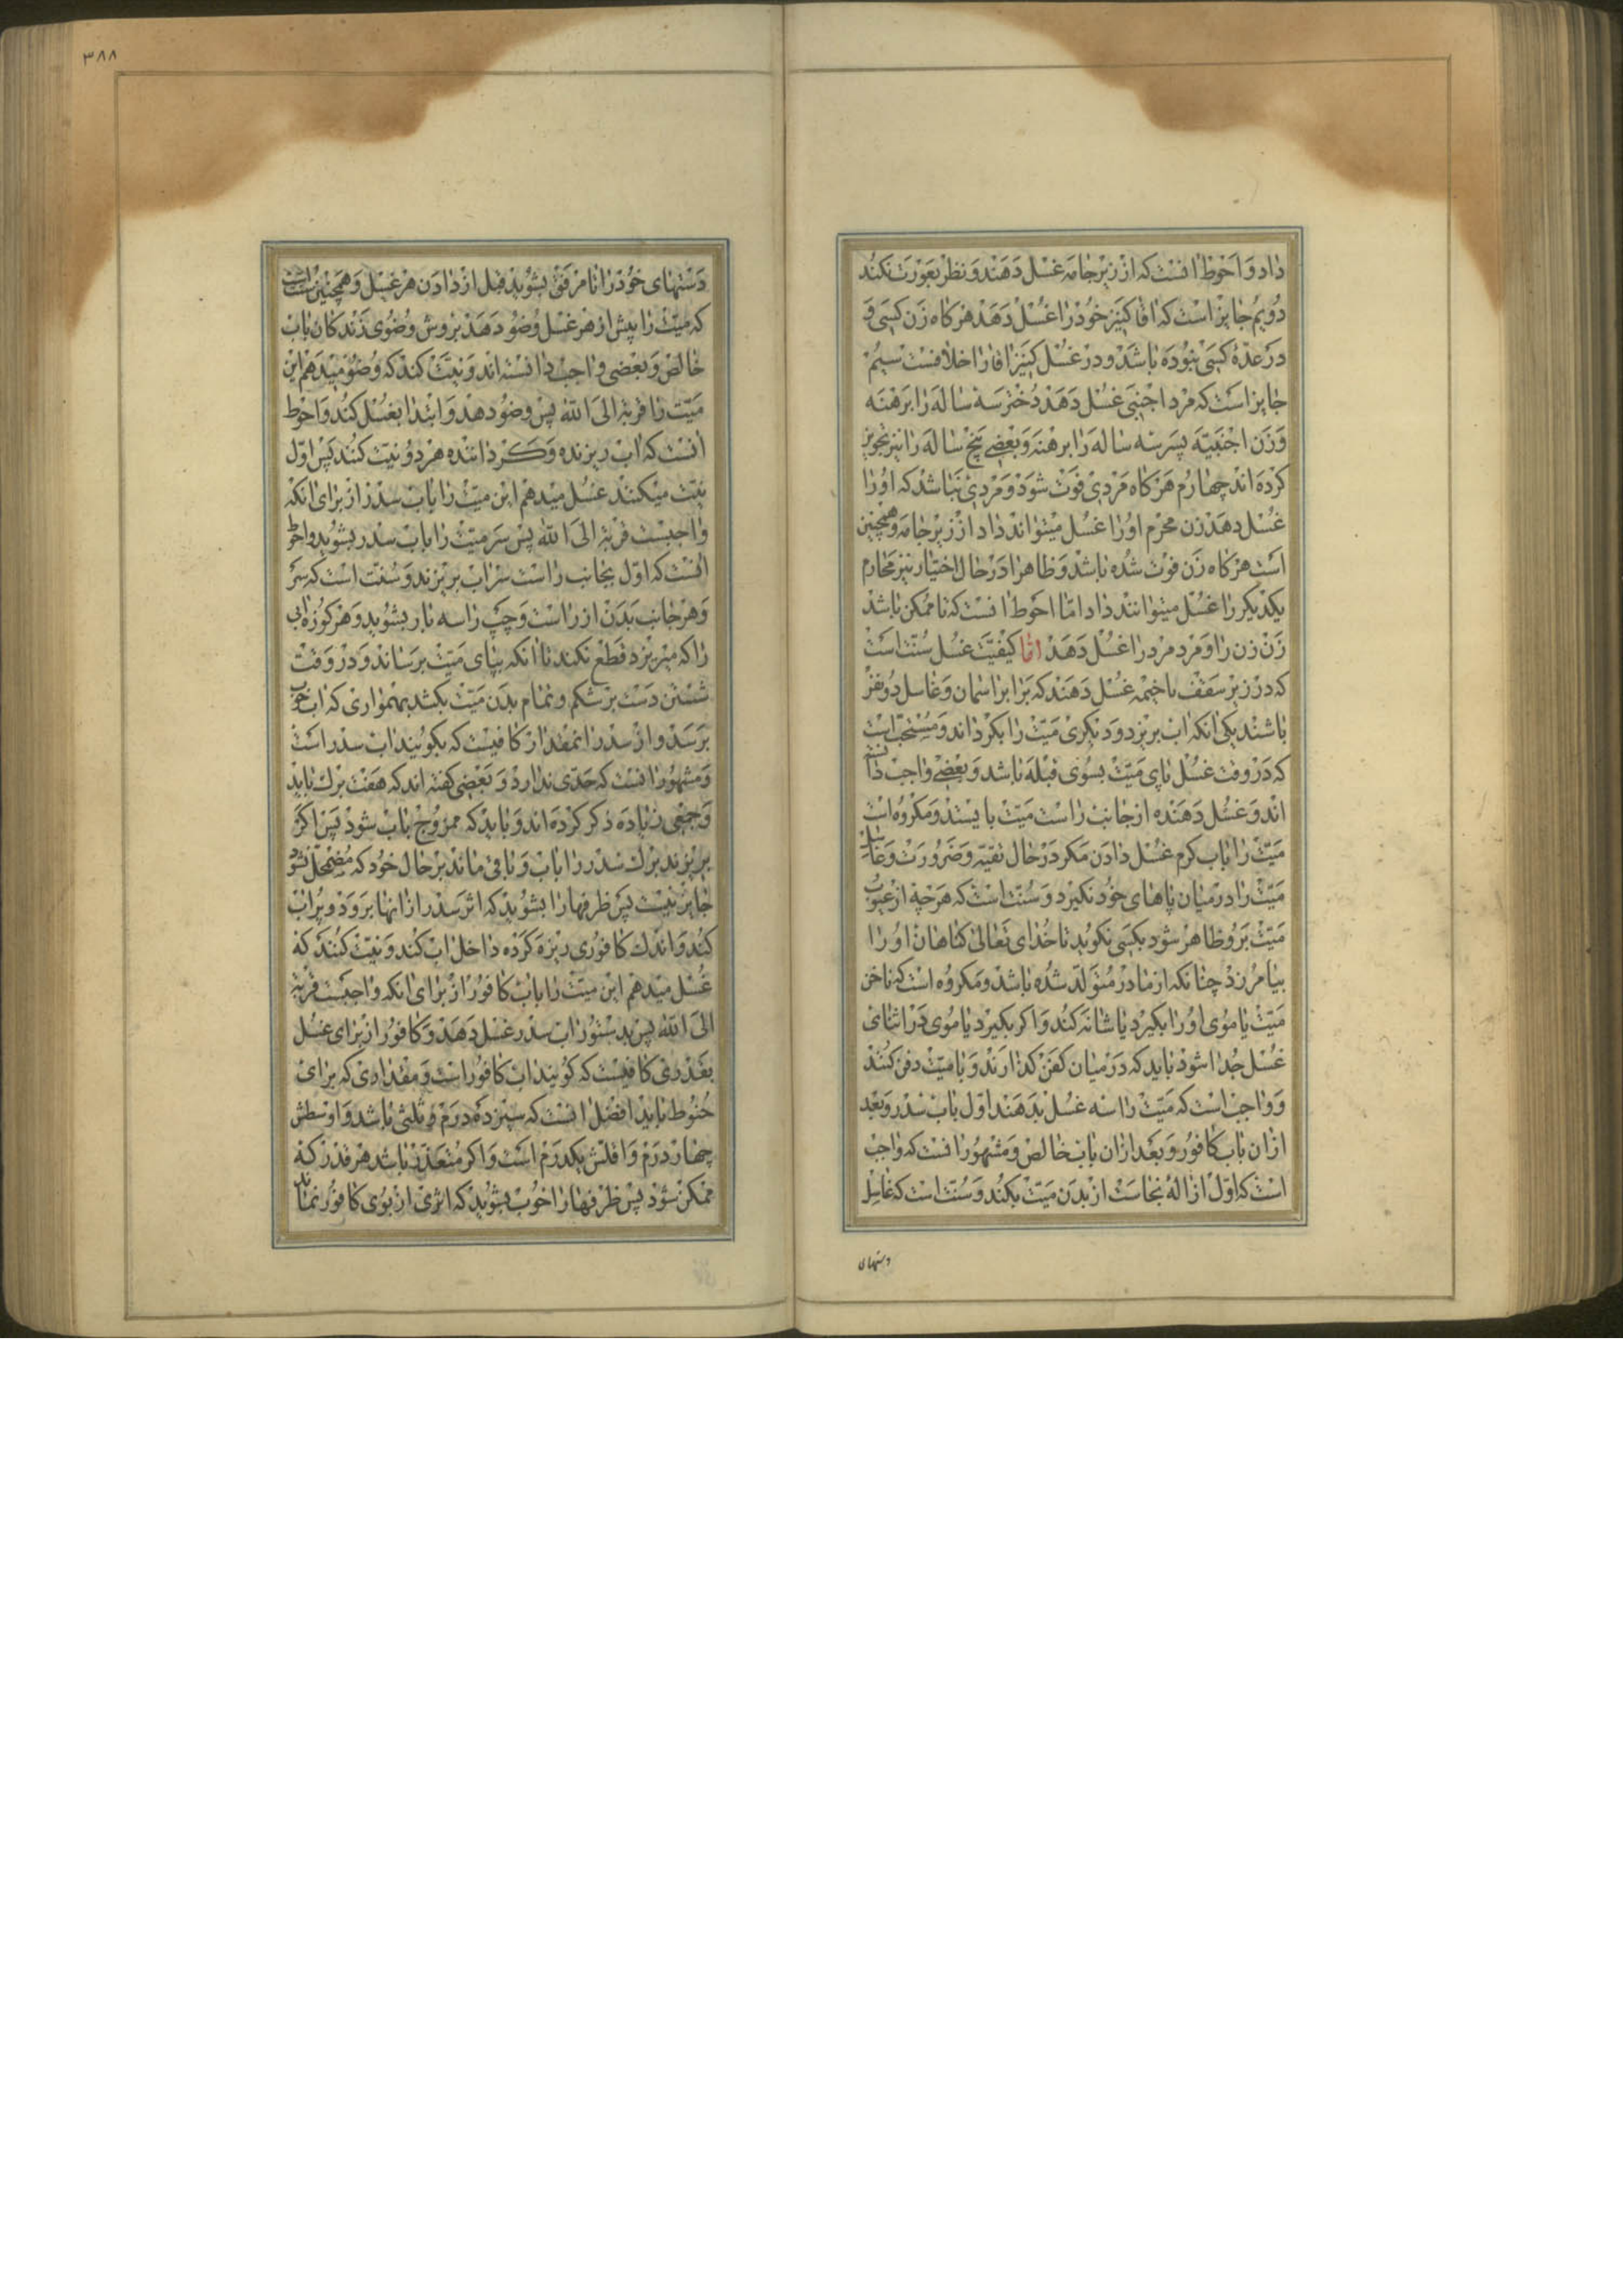 داد و احوط انست که از زیر جامه غسل دهند و نظر بعورت نکند
دویم جایز است که اقا کنیز خود را غسل دهد هرکاه زن کسی و
در عدهٔ کسی نبوده باشد و در غسل کنیز اقا را خلافست سیم
جایز است که مرد اجنبی غسل دهد دختر سه ساله را برهنه
و زن اجنبیه پسر سه ساله را برهنه و بعضی پنج ساله را نیز تجویز
کرده اند چهارم هرکاه مردی فوت شود و مردی نباشد که او را
غسل دهد زن محرم او را غسل میتواند داد از زیر جامه و همچنین
است هرکاه زن فوت شده باشد و ظاهرا در حال اختیار نیز محارم
یکدیکر را غسل میتوانند داد اما احوط انست که تا ممکن باشد
زن زن را و مرد مرد را غسل دهد اما کیفیت غسل سنت است
که در زیر سقف یا خیمه غسل دهند که برابر اسمان و غاسل دو نفر
باشند یکی انکه اب بریزد و دیکری میت را بکرداند و مستحب است
که در وقت غسل پای میت بسوی قبله باشد و بعضی واجب دانسته
اند و غسل دهنده از جانب راست میت بایستد و مکروه است
میت را باب کرم غسل دادن مکر در حال تقیه و ضرورت و غاسل
میت را در میان پاهای خود نکیرد و سنت است که هرچه از عیوب
میت بر او ظاهر شود بکسی نکوید تا خدای تعالی کناهان او را
بیامرزد چنانکه از مادر متولد شده باشد و مکروه است که ناخن
میت یا موی او را بکیرد یا شانه کند و اکر بکیرد یا موی در اثنای
غسل جدا شود باید که در میان کفن کذارند و با میت دفن کنند
و واجب است که میت را سه غسل بدهند اول باب سدر و بعد
ازان باب کافور و بعد ازان باب خالص و مشهور انست که واجب
است که اول ازالهٔ نجاست از بدن میت بکند و سنت است که غاسل
دستهای
۳۸۸
دستهای خود را تا مرفق بشوید قبل از دادن هر غسل و همچنین سنت است
که میت را پیش از هر غسل وضو دهد بروش وضوی زندکان باب
خالص و بعضی واجب دانسته اند و نیت کند که وضو میدهم این
میت را قربة الی الله پس وضو دهد و ابتدا بغسل کند و احوط
انست که اب ریزنده و کرداننده هر دو نیت کنند پس اول
نیت میکنند غسل میدهم این میت را باب سدر از برای انکه
واجبست قربة الی الله پس سر میت را باب سدر بشوید و احوط
انست که اول بجانب راست سر اب بریزند و سنت است که سر
و هر جانب بدن از راست و چپ را سه بار بشوید و هر کوزه ابی
را که میریزد قطع نکند تا انکه بپای میت برساند و در وقت
شستن دست بر شکم و تمام بدن میت بکشد بهمواری که اب خوب
برسد و از سدر انمقدار کافیست که بکویند اب سدر است
و مشهور انست که حدی ندارد و بعضی کفته اند که هفت برک باید
و جمعی زیاده ذکر کرده اند و باید که ممزوج باب شود پس اکر
بریزند برک سدر را باب و باقی ماند بر حال خود که مضمحل نشود
جایز نیست پس ظرفها را بشوید که اثر سدر از انها برود و پر اب
کند و اندک کافوری ریزه کرده داخل اب کند و نیت کنند که
غسل میدهم این میت را باب کافور از برای انکه واجبست قربة
الی الله پس بدستور اب سدر غسل دهد و کافور از برای غسل
بقدری کافیست که کویند اب کافور است و مقداری که برای
حنوط باید افضل انست که سیزده درم و ثلثی باشد و اوسطش
چهار درم و اقلش یکدرم است و اکر متعذر باشد هر قدر که
ممکن شود پس ظرفها را خوب بشوید که اثری از بوی کافور نماند